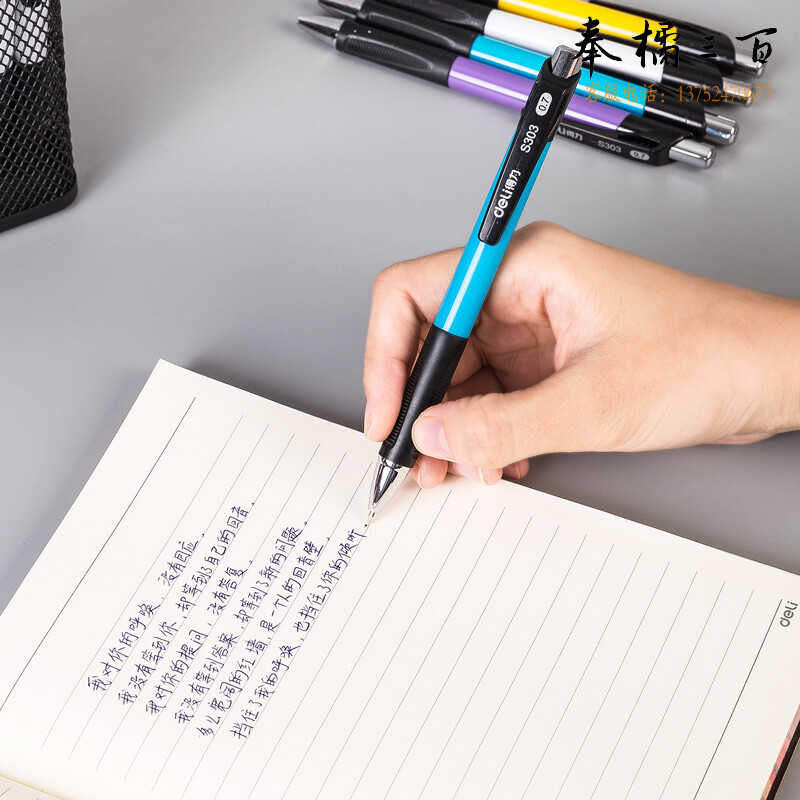 奉橘三百
客服电话：13752470977
0.7
S303
deli得力
S303 0.7
deli
我对你的呼唤，没有回应，
我没有等到你，却等到了自己的回音，
我对你的提问，没有答复，
我没有等到答案，却等到了新的问题。
多么宽阔的红墙，是一个人的回音壁，
挡住了我的呼唤，也挡住了你的倾听，